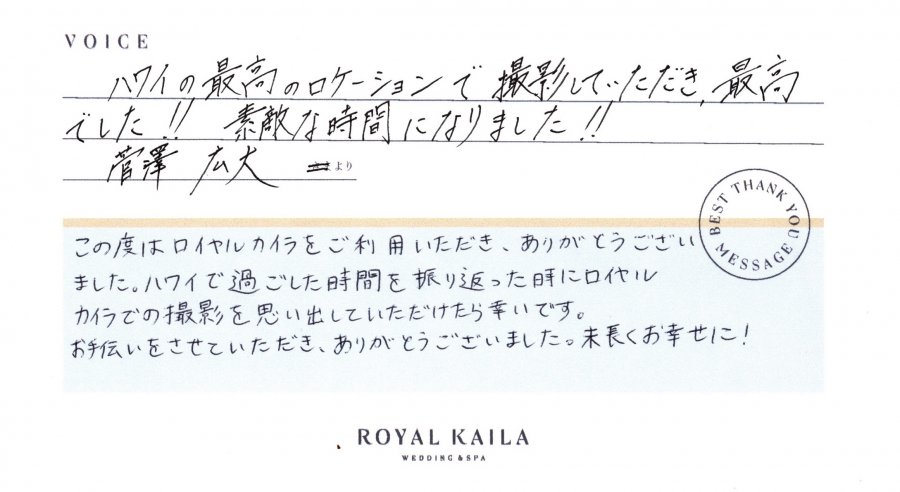 VOICE
ハワイの最高のロケーションで撮影していただき、最高
でした!! 素敵な時間になりました!!
菅澤 広大 より
BEST THANK YOU MESSAGE
この度はロイヤルカイラをご利用いただき、ありがとうござい
ました。ハワイで過ごした時間を振り返った時にロイヤル
カイラでの撮影を思い出していただけたら幸いです。
お手伝いをさせていただき、ありがとうございました。末長くお幸せに!
ROYAL KAILA
WEDDING & SPA